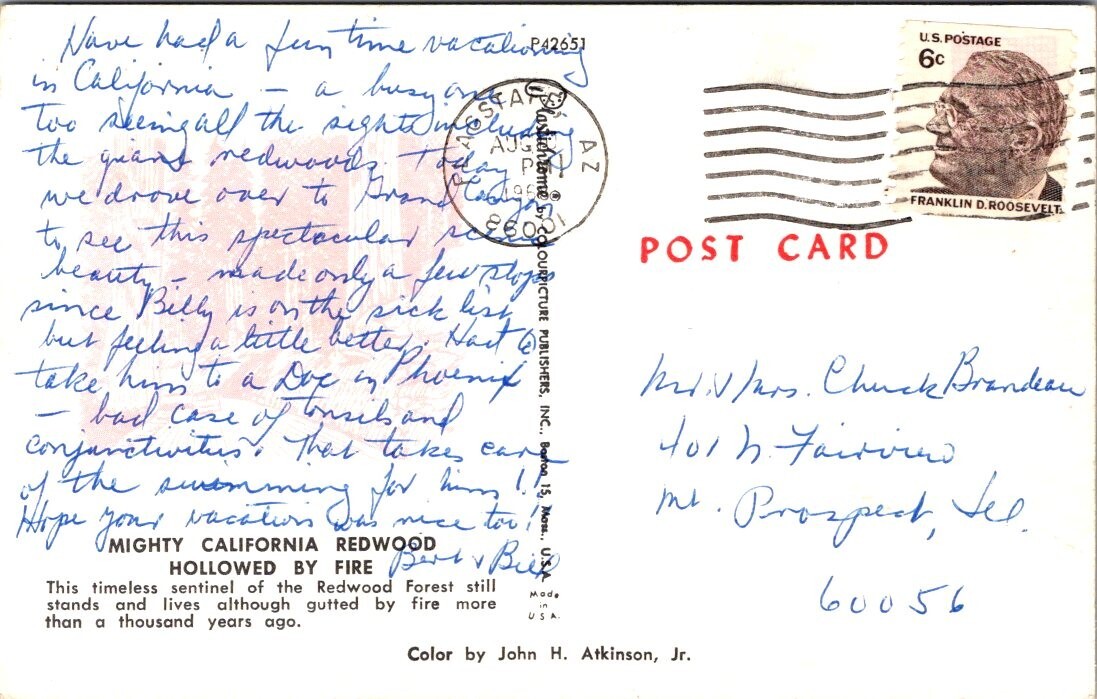 Have had a fun time vacationing
in California - a busy one
too seeing all the sights including
the giant redwoods. Today
we drove over to Grand Canyon
to see this spectacular scenic
beauty - made only a few stops
since Billy is on the sick list
but feeling a little better. Had to
take him to a Doc in Phoenix
- bad case of tonsils and
conjunctivitis. That takes care
of the swimming for him!!
Hope your vacation was nice too!
Bert & Bill
MIGHTY CALIFORNIA REDWOOD
HOLLOWED BY FIRE
This timeless sentinel of the Redwood Forest still
stands and lives although gutted by fire more
than a thousand years ago.
Color by John H. Atkinson, Jr.
P42651
Plastichrome® by COLOURPICTURE PUBLISHERS, INC., Boston 15, Mass., U.S.A.
Made
in
U S A.
FLAGSTAFF AZ
AUG
PM
86001
U.S. POSTAGE
6c
FRANKLIN D. ROOSEVELT
POST CARD
Mr. & Mrs. Chuck Brandeau
401 N. Fairview
Mt. Prospect, Ill.
60056